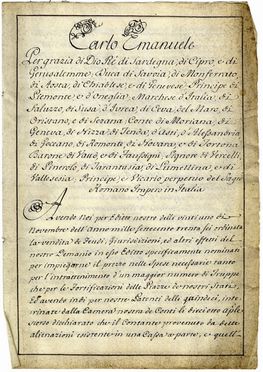 Carlo Emanuele
Per grazia di Dio Rè di Sardegna, di Cipro, e di
Gerusalemme, Duca di Savoia, di Monferrato,
di Aosta, di Chiablese, e di Genevese, Principe di
Piemonte, e d'Oneglia, Marchese d'Italia, di
Saluzzo, di Susa, d'Ivrea, di Ceva, del Maro, di
Oristano, e di Sezana, Conte di Moriana, di
Geneva, di Nizza, di Tenda, d'Asti, d'Alessandria
di Goceano, di Romonte, di Novara, e di Tortona
Barone di Vaud, e di Faussigni, Signore di Vercelli,
di Pinerolo, di Tarantasia, di Lumellina, e di
Vallesesia, Principe, e Vicario perpetuo del Sagro
Romano Impero in Italia
Avendo Noi per Editto nostro delli vinti uno di
Novembre dell'Anno mille settecento trenta sei ordinata
la vendita di Feudi, Giurisdizioni, ed altri effetti del
nostro Demanio in esso Editto specificatamente nominati
per impiegarne il prezzo nelle Spese necessarie tanto
per l'intrattenimento d'un maggior numero di Truppe
che per le Fortificazioni delle Piazze de nostri Stati
Ed avendo indi per nostre Patenti delli quindeci, inte-
rinate dalla Camera nostra de Conti li
dichiarato che il Contante provenuto da dette
alienazioni esistente in una Cassa a parte, e